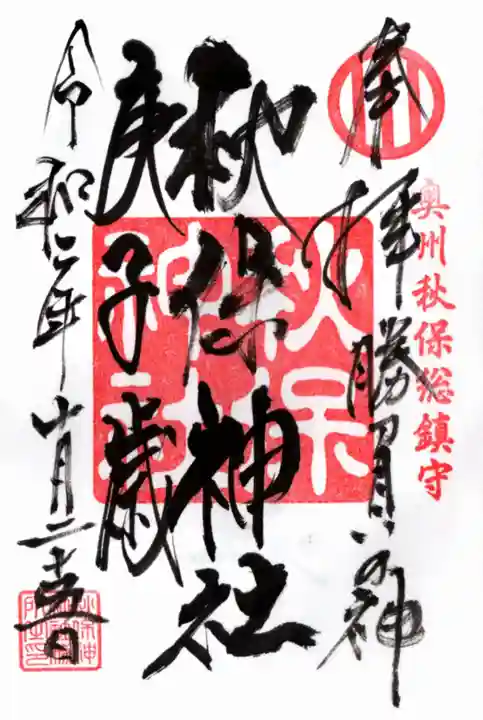 奥州秋保総鎮守
奉拝 勝負の神
秋保神社
庚子歳
令和二年 十月二十五日
秋保神社